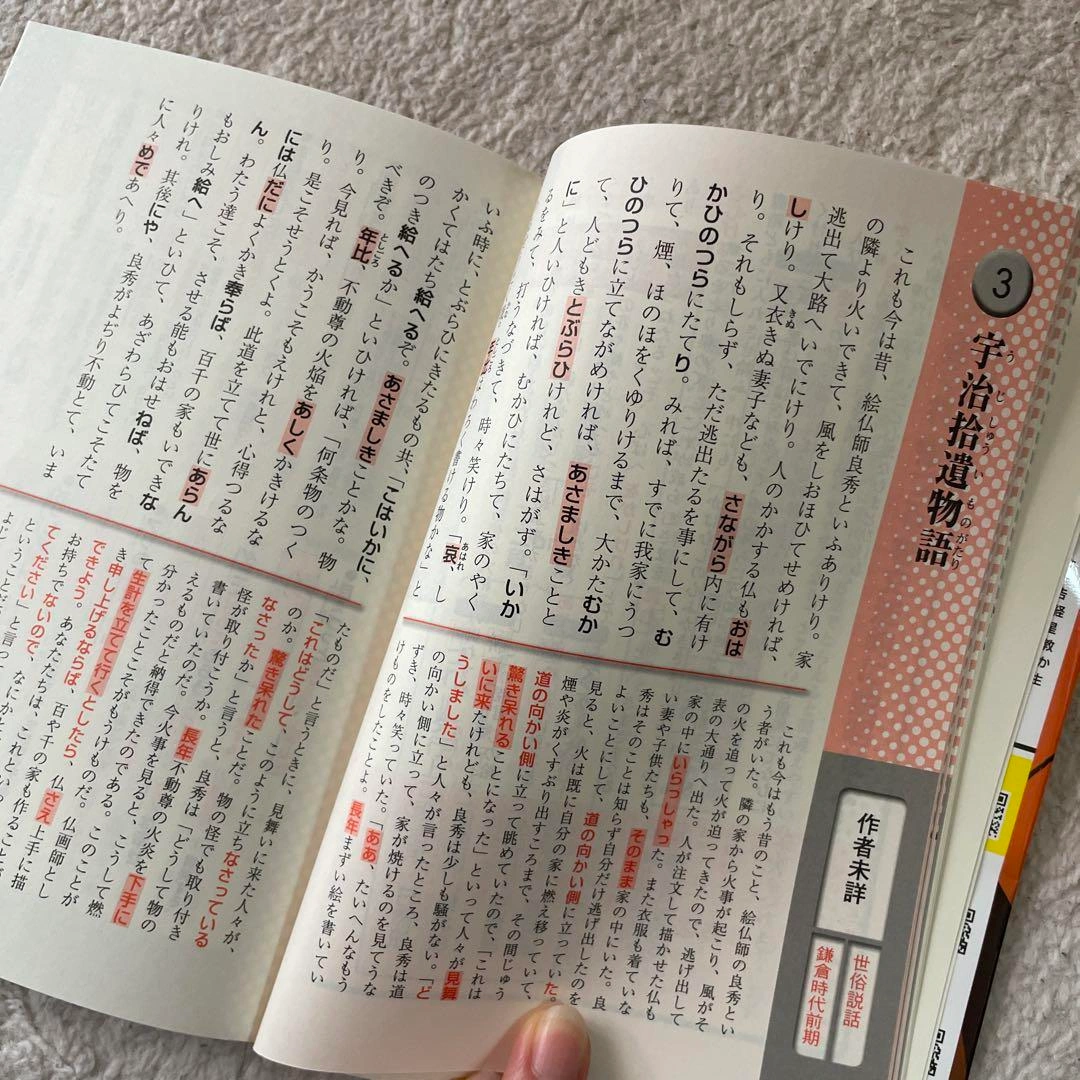 3
宇治拾遺物語
うじしゅういものがたり
作者未詳
世俗説話
鎌倉時代前期
これも今は昔、絵仏師良秀といふありけり。家
の隣より火いできて、風をしおほひてせめければ、
逃出て大路へいでにけり。人のかかする仏もおは
しけり。又衣きぬ妻子なども、さながら内に有け
きぬ
り。それもしらず、ただ逃出たるを事にして、む
かひのつらにたてり。みれば、すでに我家にうつ
りて、煙、ほのほをくゆりけるまで、大かたむか
ひのつらに立てながめければ、あさましきことと
て、人どもきとぶらひけれど、さはがず。「いか
に」と人いひければ、むかひにたちて、家のやく
るをみて、打うなづきて、時々笑けり。「哀、し
あはれ
わろく書ける物かな」と
いふ時に、とぶらひにきたるもの共、「こはいかに、
かくてはたち給へるぞ。あさましきことかな。物
のつき給へるか」といひければ、「何条物のつく
べきぞ。年比、不動尊の火焰をあしくかきけるな
としごろ
り。今見れば、かうこそもえけれと、心得つるな
り。是こそせうとくよ。此道を立てて世にあらん
には仏だによくかき奉らば、百千の家もいできな
ん。わたう達こそ、させる能もおはせねば、物を
もおしみ給へ」といひて、あざわらひてこそたて
りけれ。其後にや、良秀がよぢり不動とて、いま
に人々めであへり。
これも今はもう昔のこと、絵仏師の良秀とい
う者がいた。隣の家から火事が起こり、風がそ
の火を追って火が迫ってきたので、逃げ出して
表の大通りへ出た。人が注文して描かせた仏も
家の中にいらっしゃった。また衣服も着ていな
い妻や子供たちも、そのまま家の中にいた。良
秀はそのことは知らず自分だけ逃げ出したのを
よいことにして、道の向かい側に立っていた。
見ると、火は既に自分の家に燃え移っていて、
煙や炎がくすぶり出すころまで、その間じゅう
道の向かい側に立って眺めていたので、「これは
驚き呆れることになった」といって人々が見舞
いに来たけれども、良秀は少しも騒がない。「ど
うしました」と人々が言ったところ、良秀は道
の向かい側に立って、家が焼けるのを見てうな
ずき、時々笑っていた。「ああ、たいへんなもう
けものをしたことよ。長年まずい絵を書いてい
たものだ」と言うときに、見舞いに来た人々が、
「これはどうして、このように立ちなさっている
のか。驚き呆れたことだ。物の怪でも取り付き
なさったか」と言うと、良秀は「どうして物の
怪が取り付こうか。長年不動尊の火炎を下手に
書いていたのだ。今火事を見ると、こうして燃
えるものだと納得できたのである。このことが
分かったことこそがもうけものだ。仏画師とし
て生計を立てて行くとしたら、仏さえ上手に描
き申し上げるならば、百や千の家も作ることが
できよう。あなたたちは、これといっ
お持ちでないので、なにかと
てください」と言っ
ということだ